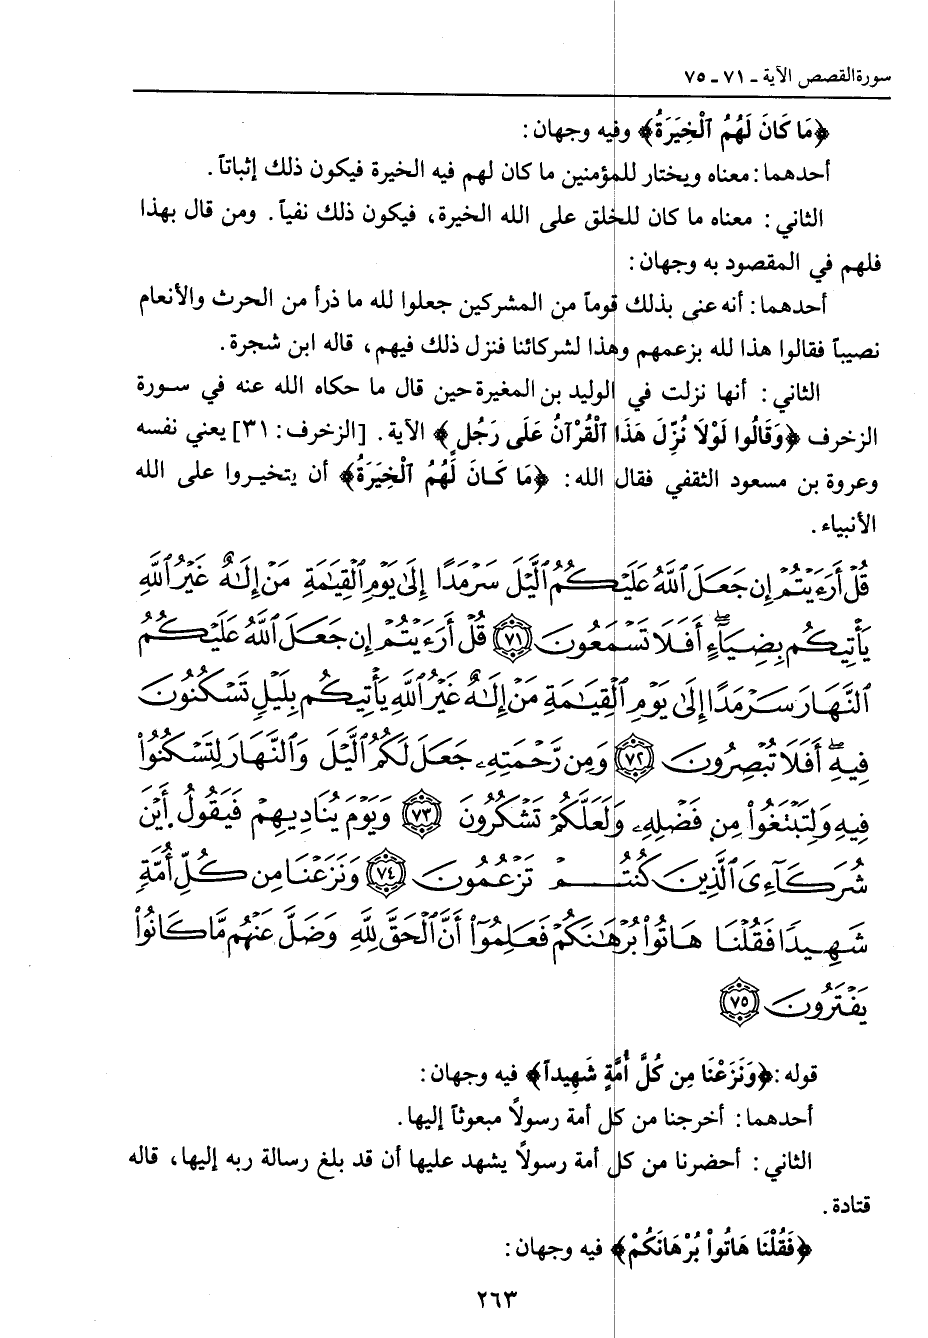 سورة القصص الآية ـ ٧١ ـ ٧٥
﴿مَا كَانَ لَهُمُ ٱلْخِيَرَةُ﴾ وفيه وجهان:
أحدهما: معناه ويختار للمؤمنين ما كان لهم فيه الخيرة فيكون ذلك إثباتاً.
الثاني: معناه ما كان للخلق على الله الخيرة، فيكون ذلك نفياً. ومن قال بهذا
فلهم في المقصود به وجهان:
أحدهما: أنه عنى بذلك قوماً من المشركين جعلوا لله ما ذرأ من الحرث والأنعام
نصيباً فقالوا هذا لله بزعمهم وهذا لشركائنا فنزل ذلك فيهم، قاله ابن شجرة.
الثاني: أنها نزلت في الوليد بن المغيرة حين قال ما حكاه الله عنه في سورة
الزخرف ﴿وَقَالُوا لَوْلَا نُزِّلَ هَذَا ٱلْقُرْآنُ عَلَى رَجُلٍ﴾ الآية. [الزخرف: ٣١] يعني نفسه
وعروة بن مسعود الثقفي فقال الله: ﴿مَا كَانَ لَهُمُ ٱلْخِيَرَةُ﴾ أن يتخيروا على الله
الأنبياء.
قُلْ أَرَءَيْتُمْ إِن جَعَلَ ٱللَّهُ عَلَيْكُمُ ٱلَّيْلَ سَرْمَدًا إِلَىٰ يَوْمِ ٱلْقِيَٰمَةِ مَنْ إِلَٰهٌ غَيْرُ ٱللَّهِ
يَأْتِيكُم بِضِيَآءٍ أَفَلَا تَسْمَعُونَ ﴿٧١﴾ قُلْ أَرَءَيْتُمْ إِن جَعَلَ ٱللَّهُ عَلَيْكُمُ
ٱلنَّهَارَ سَرْمَدًا إِلَىٰ يَوْمِ ٱلْقِيَٰمَةِ مَنْ إِلَٰهٌ غَيْرُ ٱللَّهِ يَأْتِيكُم بِلَيْلٍ تَسْكُنُونَ
فِيهِ أَفَلَا تُبْصِرُونَ ﴿٧٢﴾ وَمِن رَّحْمَتِهِۦ جَعَلَ لَكُمُ ٱلَّيْلَ وَٱلنَّهَارَ لِتَسْكُنُوا۟
فِيهِ وَلِتَبْتَغُوا۟ مِن فَضْلِهِۦ وَلَعَلَّكُمْ تَشْكُرُونَ ﴿٧٣﴾ وَيَوْمَ يُنَادِيهِمْ فَيَقُولُ أَيْنَ
شُرَكَآءِىَ ٱلَّذِينَ كُنتُمْ تَزْعُمُونَ ﴿٧٤﴾ وَنَزَعْنَا مِن كُلِّ أُمَّةٍ
شَهِيدًا فَقُلْنَا هَاتُوا۟ بُرْهَٰنَكُمْ فَعَلِمُوٓا۟ أَنَّ ٱلْحَقَّ لِلَّهِ وَضَلَّ عَنْهُم مَّا كَانُوا۟
يَفْتَرُونَ ﴿٧٥﴾
قوله: ﴿وَنَزَعْنَا مِن كُلِّ أُمَّةٍ شَهِيداً﴾ فيه وجهان:
أحدهما: أخرجنا من كل أمة رسولاً مبعوثاً إليها.
الثاني: أحضرنا من كل أمة رسولاً يشهد عليها أن قد بلغ رسالة ربه إليها، قاله
قتادة.
﴿فَقُلْنَا هَاتُواْ بُرْهَانَكُمْ﴾ فيه وجهان:
٢٦٣